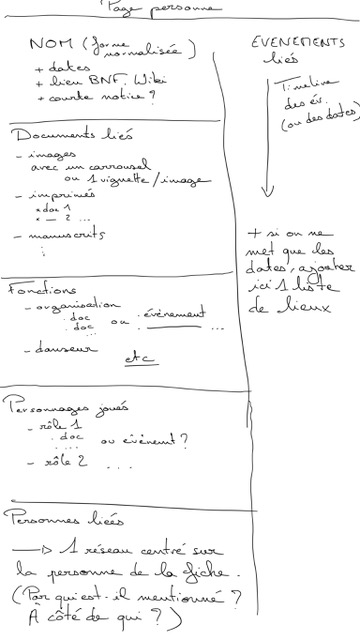 Page personne
NOM (forme
normalisée)
+ dates
+ lien BNF, Wiki
+ courte notice ?
Documents liés
- images
avec un carrousel
ou 1 vignette / image
- imprimés
* doc 1
* — 2 ...
- manuscrits
⋮
Fonctions
- organisation
. doc
. doc
...
ou . événement
...
- danseur
etc
Personnages joués
- rôle 1
. doc
....
ou événemt ?
- rôle 2 ...
Personnes liées
→ 1 réseau centré sur
la personne de la fiche.
(Par qui est-il mentionné ?
À côté de qui ?)
EVENEMENTS
liés
Timeline
des év.
(ou des dates)
+ si on ne
met que les
dates, ajouter
ici 1 liste
de lieux